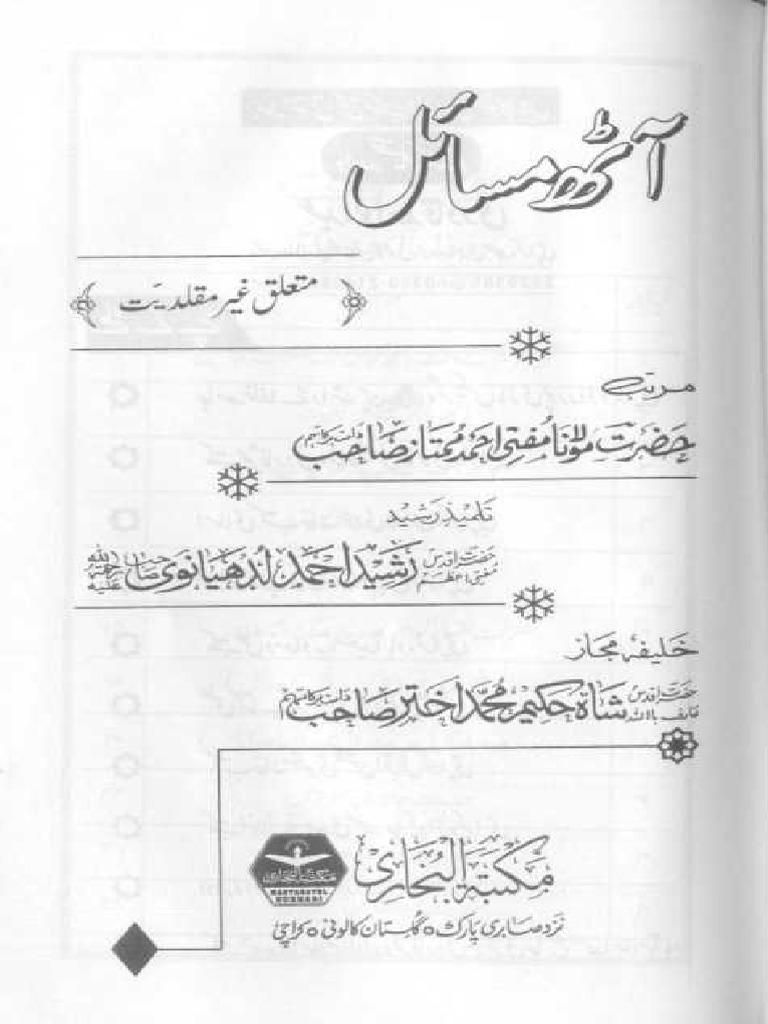 آٹھ مسائل
متعلق غیر مقلدیت
مرتب
حضرت مولانا مفتی احمد ممتاز صاحب دامت برکاتہم
تلمیذ رشید
حضرت اقدس مفتی اعظم رشید احمد لدھیانوی صاحب رحمہ اللہ علیہ
خلیفہ مجاز
حضرت اقدس عارف باللہ شاہ حکیم محمد اختر صاحب دامت برکاتہم
مکتبۃ البخاری
مکتبۃ البخاری
MAKTABATUL
BUKHARI
نزد صابری پارک، گلستان کالونی، کراچی